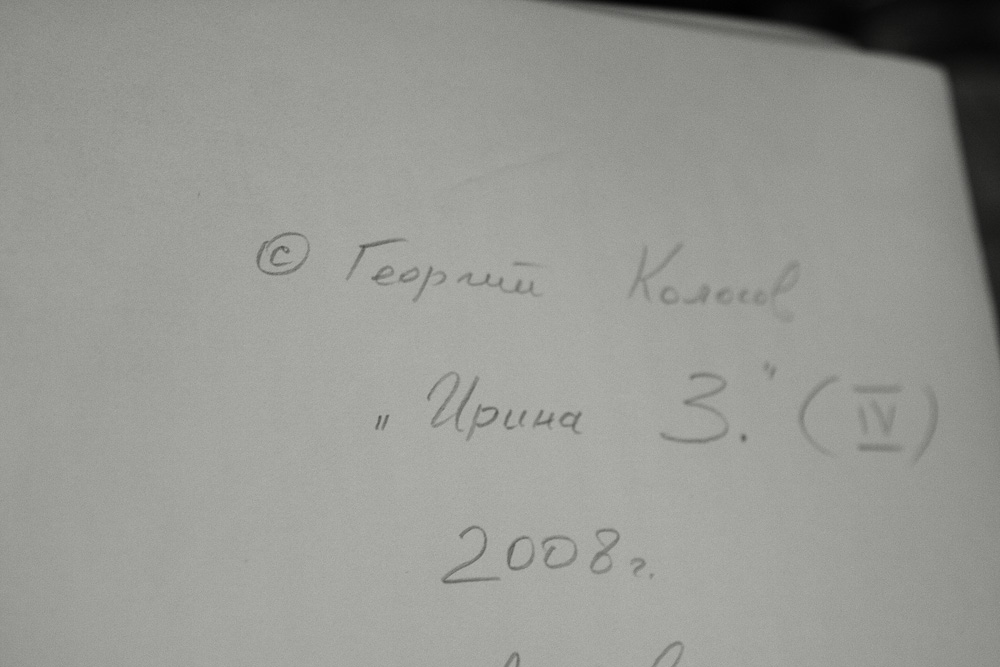 © Георгий Колосов
„Ирина З." (IV)
2008г.